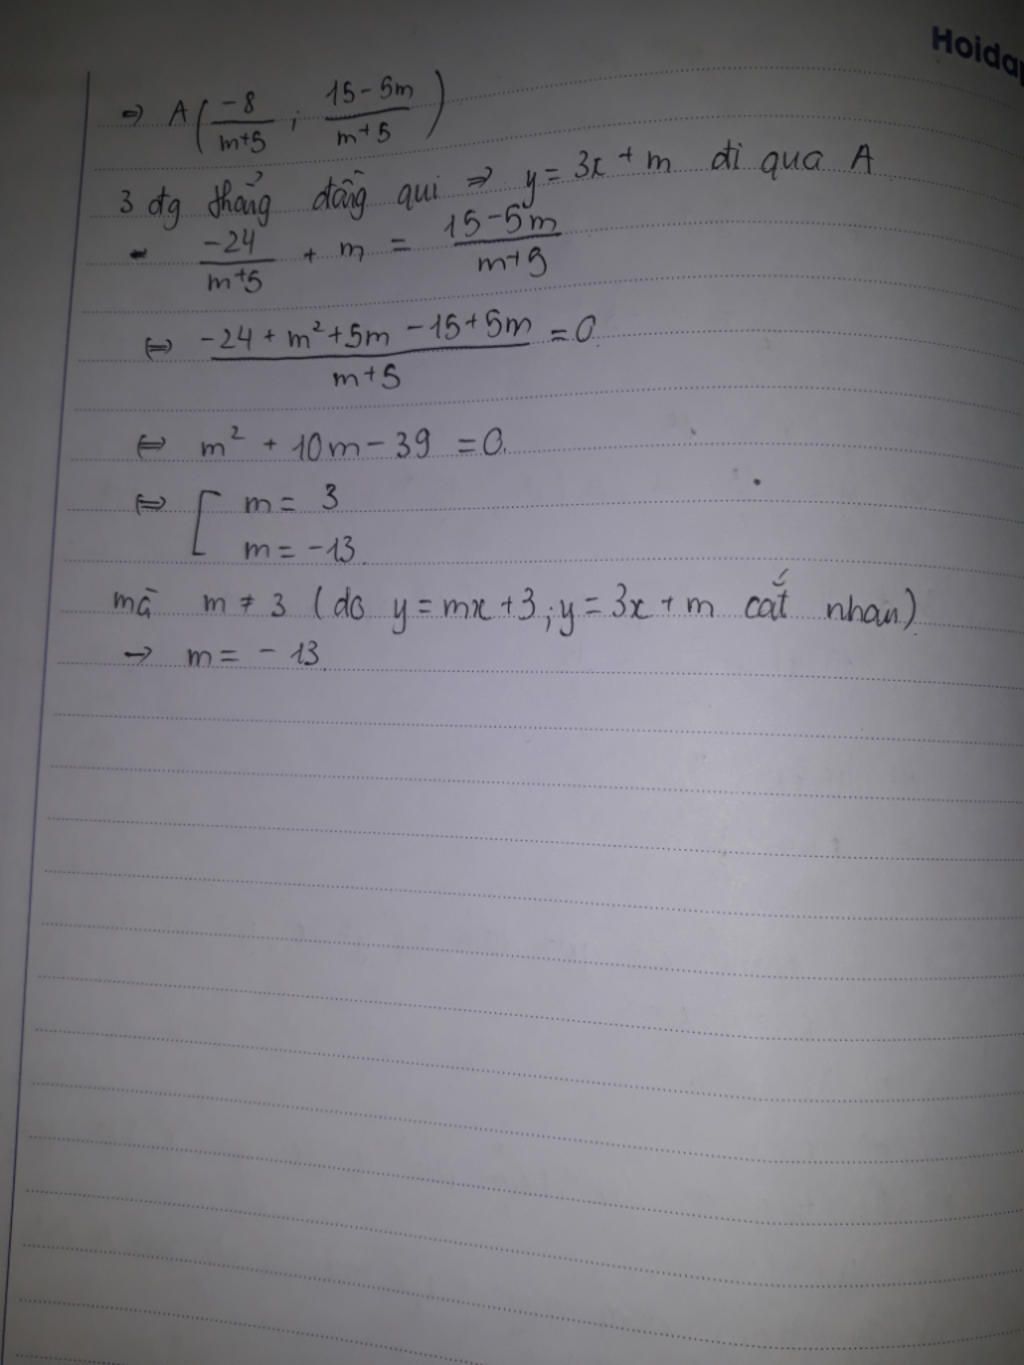 Hoidap
⇒ A(-8/(m+5) ; (15-5m)/(m+5))
3 đg thẳng đồng qui ⇒ y = 3x + m đi qua A
- -24/(m+5) + m = (15-5m)/(m+5)
⇔ (-24 + m² + 5m - 15 + 5m)/(m+5) = 0
⇔ m² + 10m - 39 = 0.
⇔ [ m = 3
m = -13.
mà m ≠ 3 (do y = mx + 3 ; y = 3x + m cắt nhau)
→ m = -13.